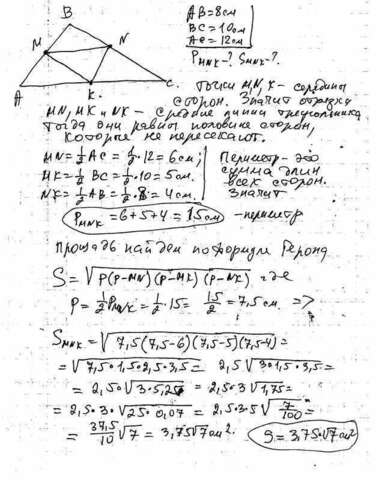 B
AB = 8см
BC = 10см
AC = 12см
P_MNK - ? S_MNK - ?
M
N
A
K
C
Точки M, N, K - середины
сторон. Значит отрезки
MN, MK и NK - средние линии треугольника
Тогда они равны половине сторон,
которые не пересекают.
MN = ½ AC = ½ · 12 = 6см;
MK = ½ BC = ½ · 10 = 5см.
NK = ½ AB = ½ · 8 = 4см.
Периметр - это
сумма длин
всех сторон.
Значит
P_MNK = 6 + 5 + 4 = 15см - периметр
Площадь найдем по формуле Герона
S = √P(P-MN)(P-MK)(P-NK) где
P = ½ P_MNK = ½ · 15 = 15/2 = 7,5 см. =>
S_MNK = √7,5(7,5-6)(7,5-5)(7,5-4) =
= √7,5 · 1,5 · 2,5 · 3,5 = 2,5√3 · 1,5 · 3,5 =
= 2,5 · √3 · 5,25 = 2,5 · 3√1,75 =
= 2,5 · 3 · √25 · 0,07 = 2,5 · 3 · 5√7/100 =
= 37,5/10 √7 = 3,75√7 см².
S = 3,75 · √7 см²